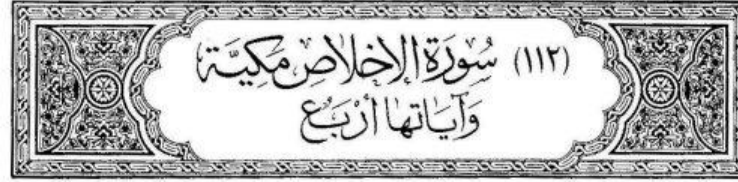 (١١٢) سُورَة الإخلاص مَكيَّة
وَآيَاتها أرْبَع